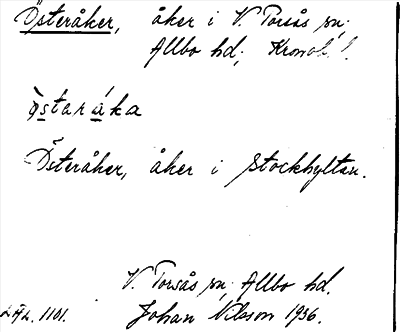 Österåker, åker i V. Torsås sn;
Allbo hd; Kronob. l.
östaráka
Österåker, åker i Stockhyltan.
V. Torsås sn; Allbo hd.
Johan Nilsson 1936.
1101.